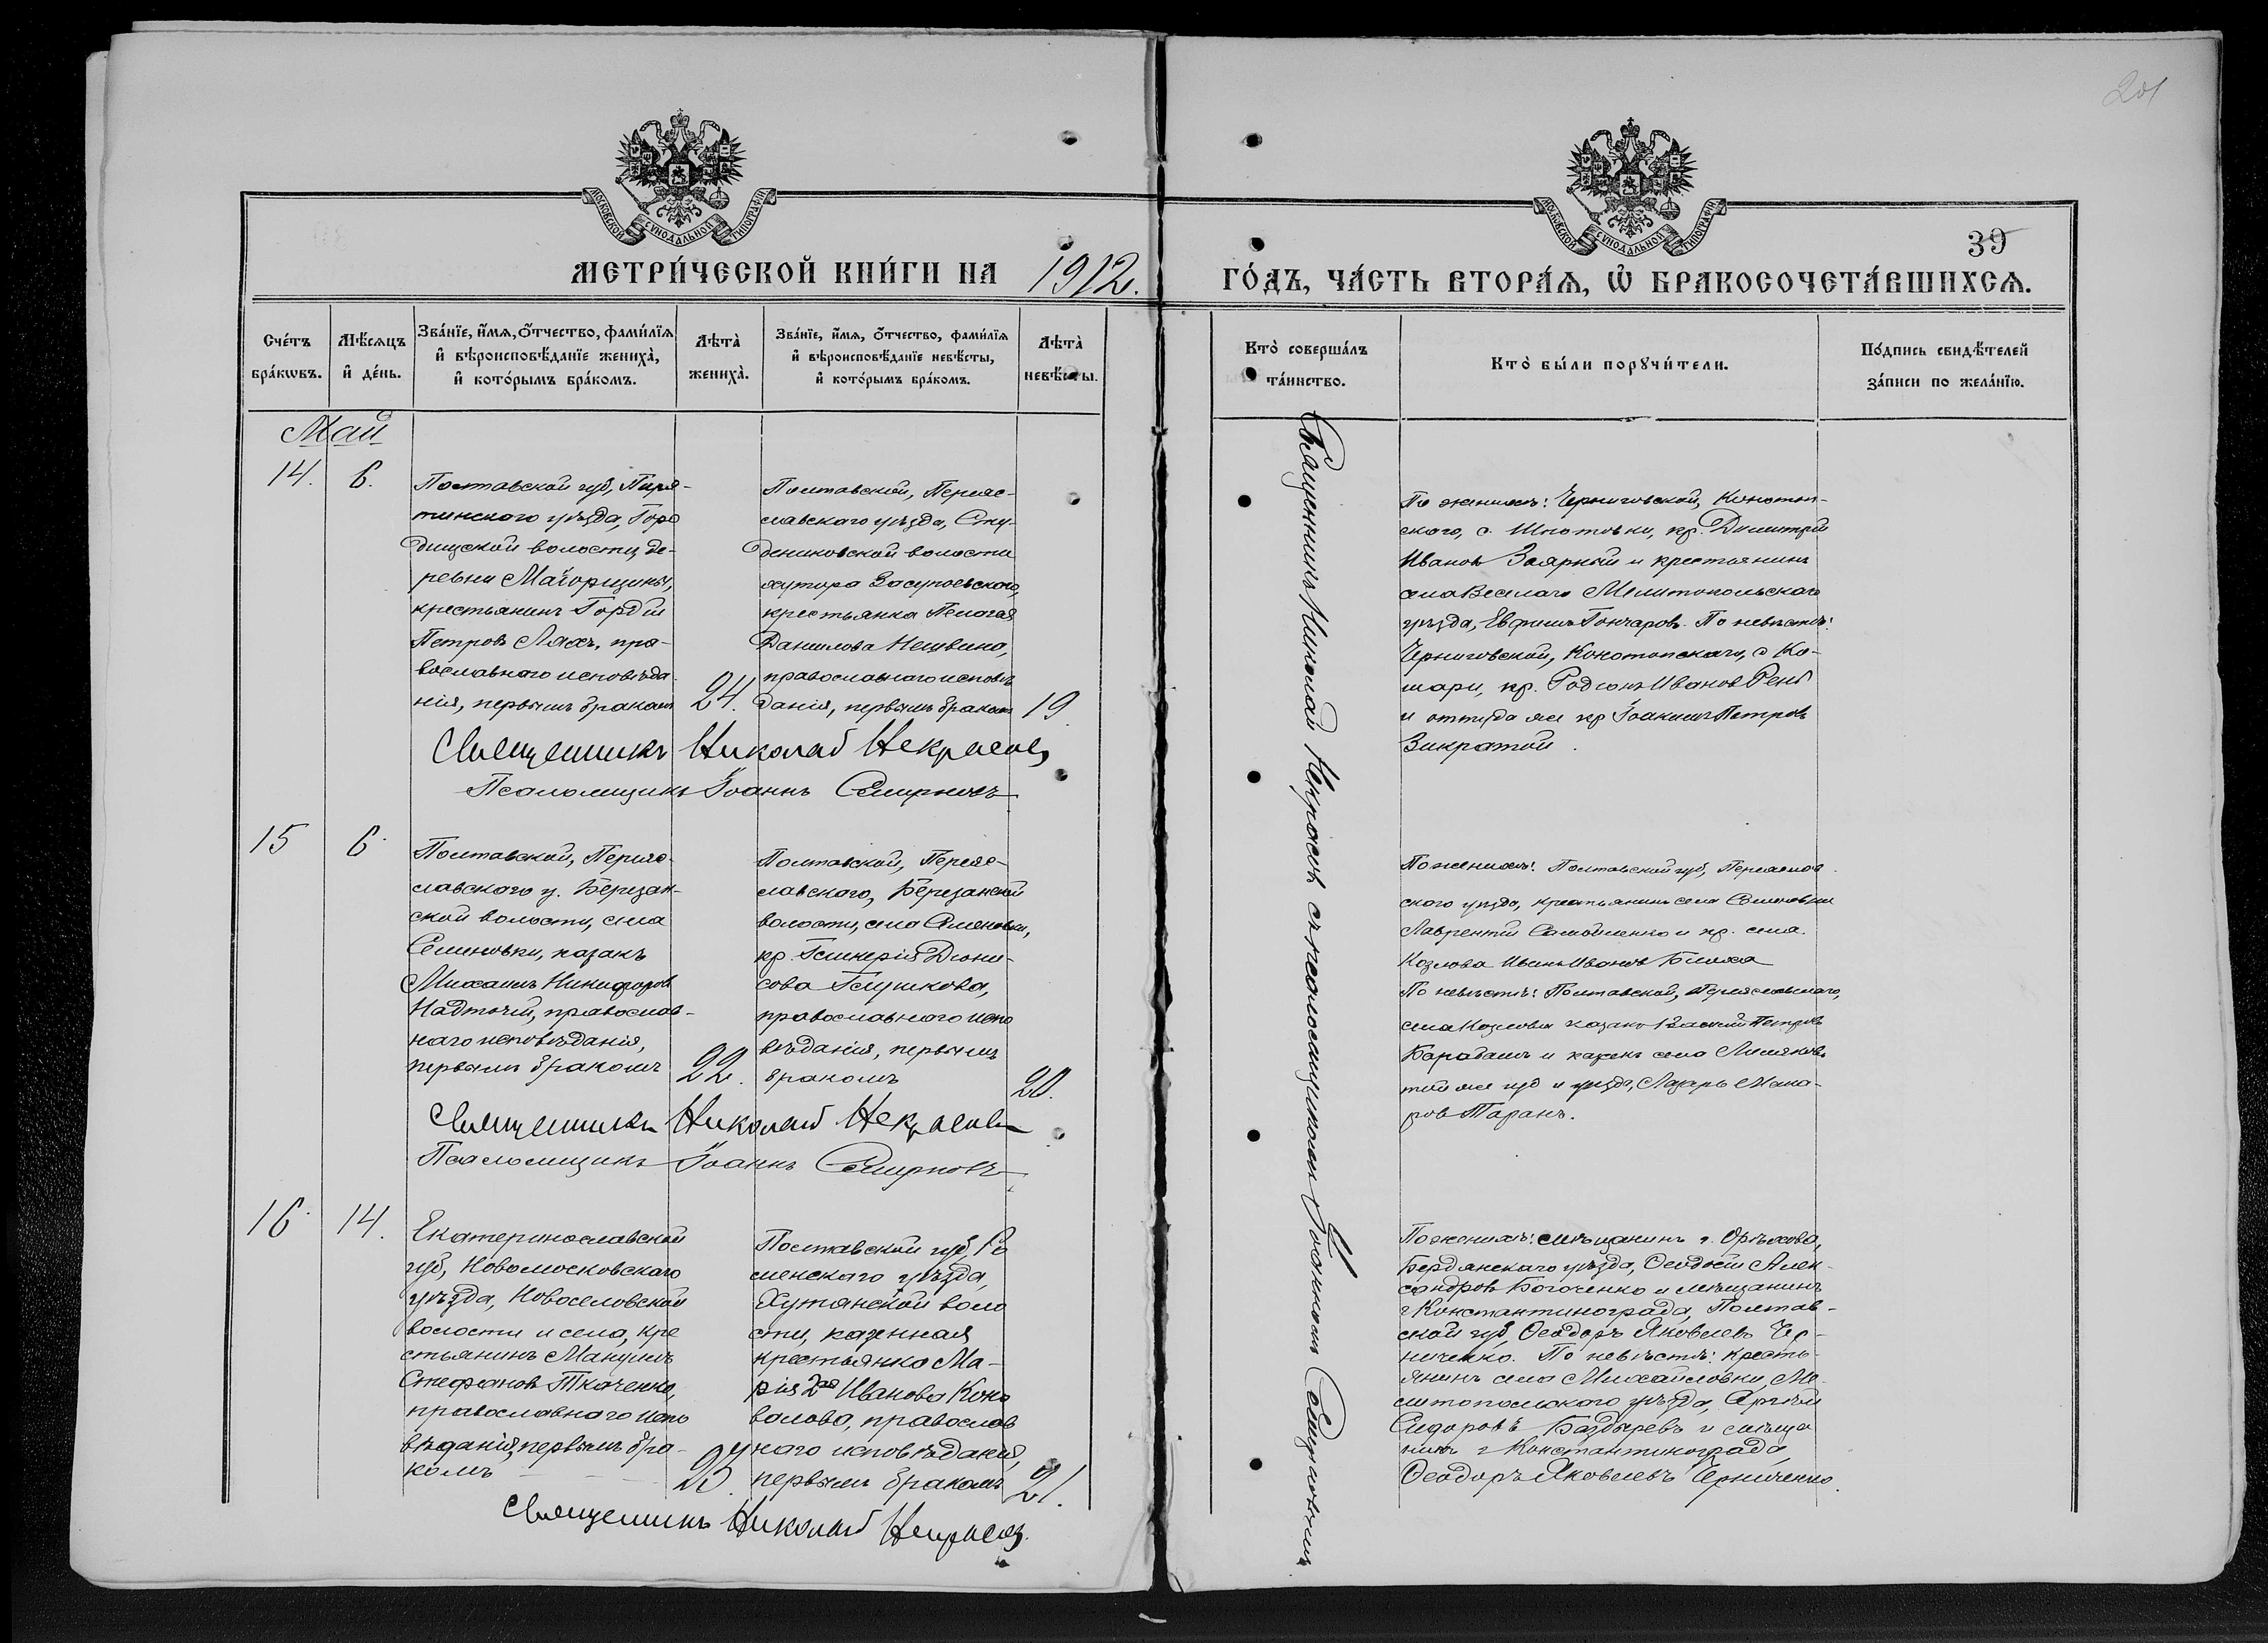 201
39
МОСКОВСКОЙ СѴНОДАЛЬНОЙ ТИПОГРАФІИ
МОСКОВСКОЙ СѴНОДАЛЬНОЙ ТИПОГРАФІИ
МЕТРИ́ЧЕСКОЙ КНИ́ГИ НА 1912. ГО́ДЪ, ЧА́СТЬ ВТОРА́Я, Ѽ БРАКОСОЧЕТА́ВШИХСѦ.
Сче́тъ
бра́кѡвъ.
Мѣ́сяцъ
и҆ де́нь.
Зва́нїе, и҆́мя, ѻ҆́тчество, фами́лїя
и҆ вѣроисповѣ́данїе жениха̀,
и҆ кото́рымъ бра́комъ.
Лѣта̀
жениха̀.
Зва́нїе, и҆́мя, ѻ҆́тчество, фами́лїя
и҆ вѣроисповѣ́данїе невѣ́сты,
и҆ кото́рымъ бра́комъ.
Лѣта̀
невѣ́сты.
Кто̀ соверша́лъ
та́инство.
Кто̀ бы́ли порꙋчи́тели.
По́дпись свидѣ́телей
за́писи по жела́нїю.
Май
14.
6.
Полтавской губ, Пиря-
тинского уѣзда, Горо
дищской волости, де-
ревни
крестьянинъ Гордій
Петровъ Ляхъ, пра-
вославнаго исповѣда
нія, первымъ бракомъ
24.
Полтавской, Переяс-
славского уѣзда, Сту-
дениковской волости
хутора Засупоевского,
крестьянка Пелагея
Данилова
православнаго исповѣ
данія, первымъ бракомъ
19
Священникъ Николай Некрасовъ
Псаломщикъ Іоаннъ Смирновъ
По женихѣ: Черниговской, Конотоп-
ского, с. Шпотовки, кр. Димитрій
Ивановъ Заярный и крестьянинъ
села Веселаго Мелитопольскаго
уѣзда, Евфимъ Гончаровъ. По невѣстѣ:
Черниговской, Конотопскаго, с Ко-
шари, кр. Родіонъ Ивановъ
и оттуда же кр Іоакимъ Петровъ
Закратой.
15
6.
Полтавской, Переяс-
славского у. Березан-
ской волости, села
Семеновки, казакъ
Михаилъ Никифоровъ
Надточій, православ-
наго исповѣданія,
первымъ бракомъ
22.
Полтавской, Переяс-
славского, Березанской
волости, села Семеновки,
кр. Гликерія Діони-
сова Глушкова,
православнаго испо
вѣданія, первымъ
бракомъ
20.
Священникъ Николай Некрасовъ
Псаломщикъ Іоаннъ Смирновъ
По женихѣ: Полтавской губ, Переяслав
ского уѣзда, крестьянинъ села Семеновки
Лаврентій Самойленко и кр. села
Козлова Иванъ Ивановъ
По невѣстѣ: Полтавской, Переяславскаго,
села Козлова казакъ Василій Петровъ
и казакъ села
той же губ и уѣзда, Лазарь Мака-
ровъ Таранъ.
16.
14.
Екатеринославской
губ, Новомосковскаго
уѣзда, Новоселовской
волости и села, кре
стьянинъ Мануилъ
Стефановъ Ткаченко,
православнаго испо
вѣданія, первымъ бра-
комъ
25.
Полтавской губ, Ро
менскаго уѣзда,
волo
сти, казенная
крестьянка Ма-
рія 2ая Иванова Коно
валова, православ
наго исповѣданія,
первымъ бракомъ
21.
Священникъ Николай Некрасовъ.
По женихѣ: мѣщанинъ г. Орѣхова,
Бердянскаго уѣзда, Ѳеодосій Алек-
сандровъ и мѣщанинъ
г Константинограда, Полтав-
ской губ, Ѳеодоръ Яковлевъ Чер-
ниченко. По невѣстѣ: кресть-
янинъ села Михайловки, Ме-
литопольского уѣзда, Сергѣй
Сидоровъ Баздыревъ и мѣща
нинъ г Константинограда,
Ѳеодоръ Яковлевъ Черниченко.
Священникъ Николай Некрасовъ съ псаломщикомъ Іоанномъ Смирновымъ